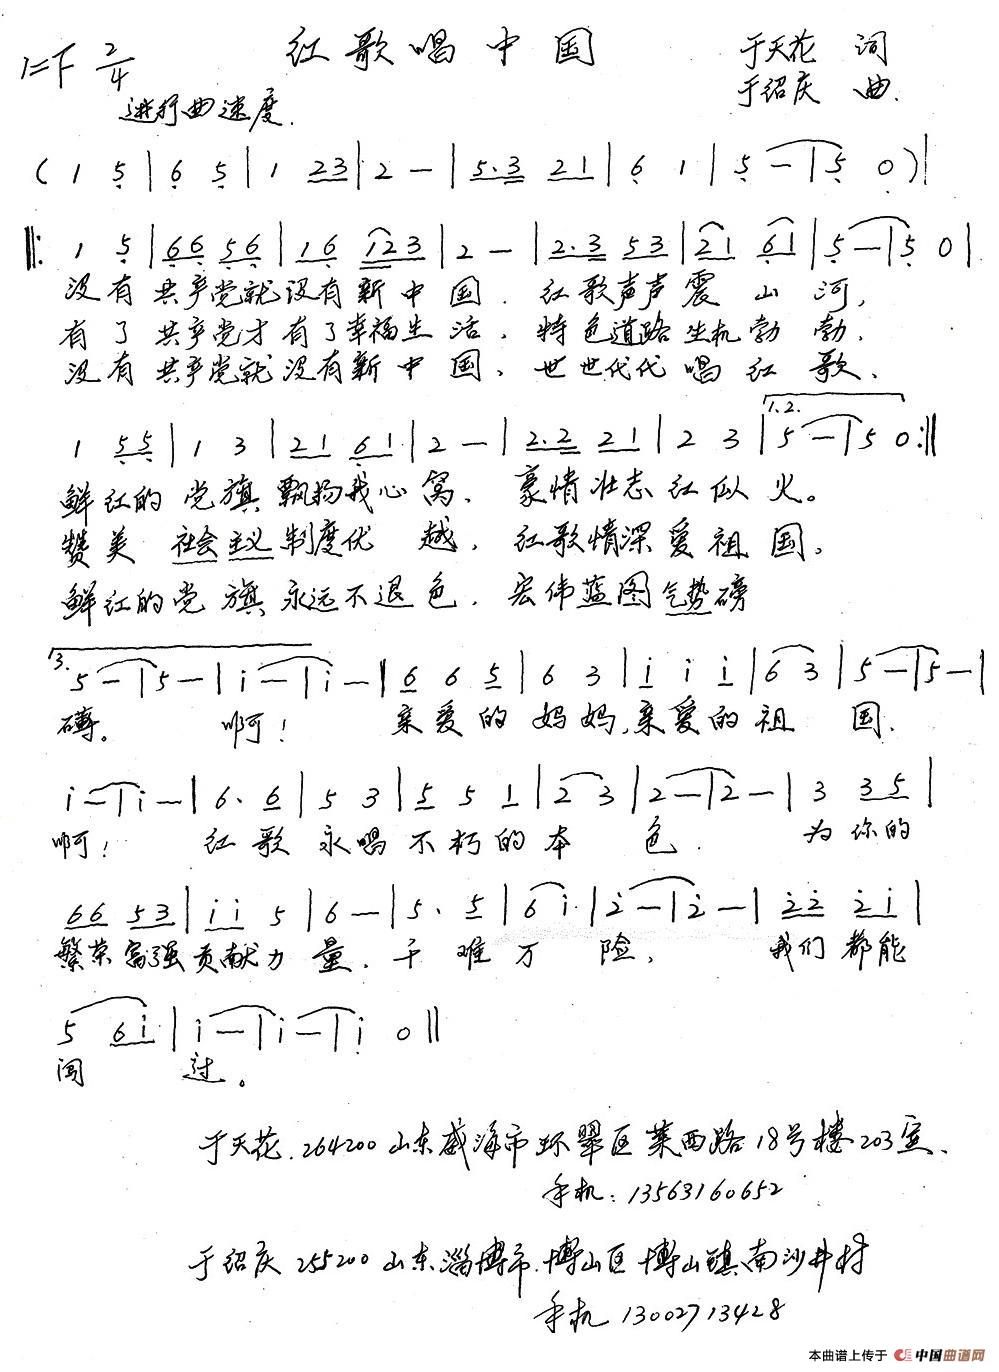 红歌唱中国
1=F 2/4
于天花 词
于绍庆 曲.
进行曲速度.
( 1 5 | 6 5 | 1 23 | 2 — | 5·3 21 | 6 1 | 5 — | 5 0 ) |
‖: 1 5 | 66 56 | 16 123 | 2 — | 2·3 53 | 21 61 | 5 — | 5 0 |
没有 共产党就没有新中国. 红歌声声震山河,
有了共产党才有了幸福生活, 特色道路生机勃勃.
没有共产党就没有新中国、世世代代唱红歌、
1 55 | 1 3 | 21 61 | 2 — | 2·2 21 | 2 3 | 1.2. 5 — | 5 0 :‖
鲜红的党旗飘扬我心窝. 豪情壮志红似火。
赞美社会主义制度优越, 红歌情深爱祖国。
鲜红的党旗永远不退色. 宏伟蓝图气势磅
3. 5 — | 5 — | i — | i — ‖ 6 6 5 | 6 3 | i i i | 6 3 | 5 — | 5 — |
礴。 啊! 亲爱的妈妈,亲爱的祖国.
i — | i — | 6· 6 | 5 3 | 5 5 1 | 2 3 | 2 — | 2 — | 3 35 |
啊! 红歌永唱不朽的本色. 为你的
66 53 | ii 5 | 6 — | 5· 5 | 6 i | 2̇ — | 2̇ — | 2̇2̇ 2̇i |
繁荣富强贡献力量. 千难万险, 我们都能
5 6i | i — | i — | i 0 ‖
闯过。
于天花.264200 山东威海市环翠区莱西路18号楼203室.
手机:13563160652
于绍庆 255200 山东淄博市.博山区博山镇南沙井村
手机 13002713428
本曲谱上传于 中国曲谱网